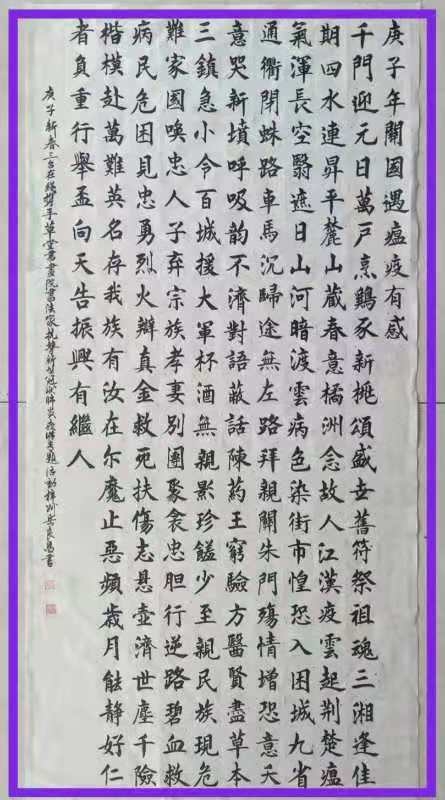 庚子年關國遇瘟疫有感
千門迎元日萬戶烹鷄豕新桃頌盛世舊符祭祖魂三湘逢佳
期四水連昇平麓山藏春意橘洲念故人江漢疫雲起荆楚瘟
氣渾長空翳遮日山河暗渡雲病色染街市惶恐入困城九省
通衢閉蛛路車馬沉歸途無左路拜親關朱門殤情增恐意天
意哭新墳呼吸韵不濟對語蔽話陳药王窮驗方醫賢盡草本
三鎮急小令百城援大軍杯酒無親影珍饈少至親民族現危
難家國喚忠人子弃宗族孝妻別團聚衾忠胆行逆路碧血救
病民危困見忠勇烈火辯真金救死扶傷志悬壶濟世塵千險
楷模赴萬難英名存我族有汝在尔魔止惡頻歲月能静好仁
者負重行舉盃向天告振興有繼人
庚子新春三台在線携手草堂書畫院書法家抗擊新型冠狀肺炎疫情主題活動梓州岳良馬書